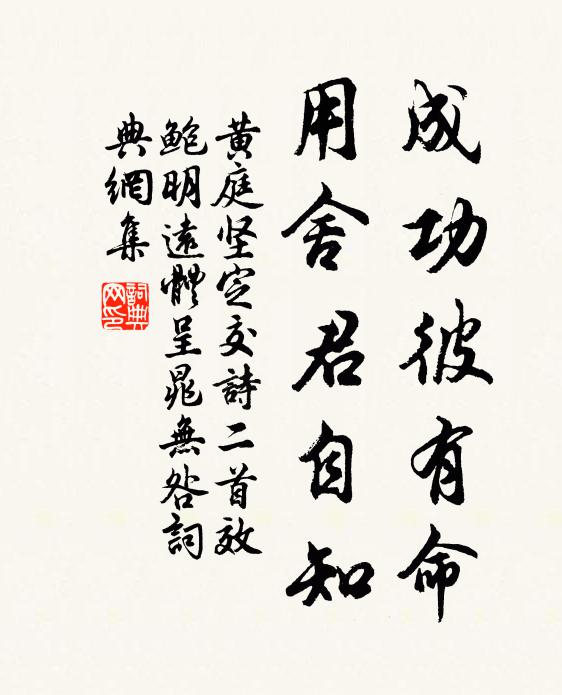 成功彼有命
用舍君自知
黄庭坚定交詩二首效
鲍明遠體呈晁無咎詞
典網集
詞典网印